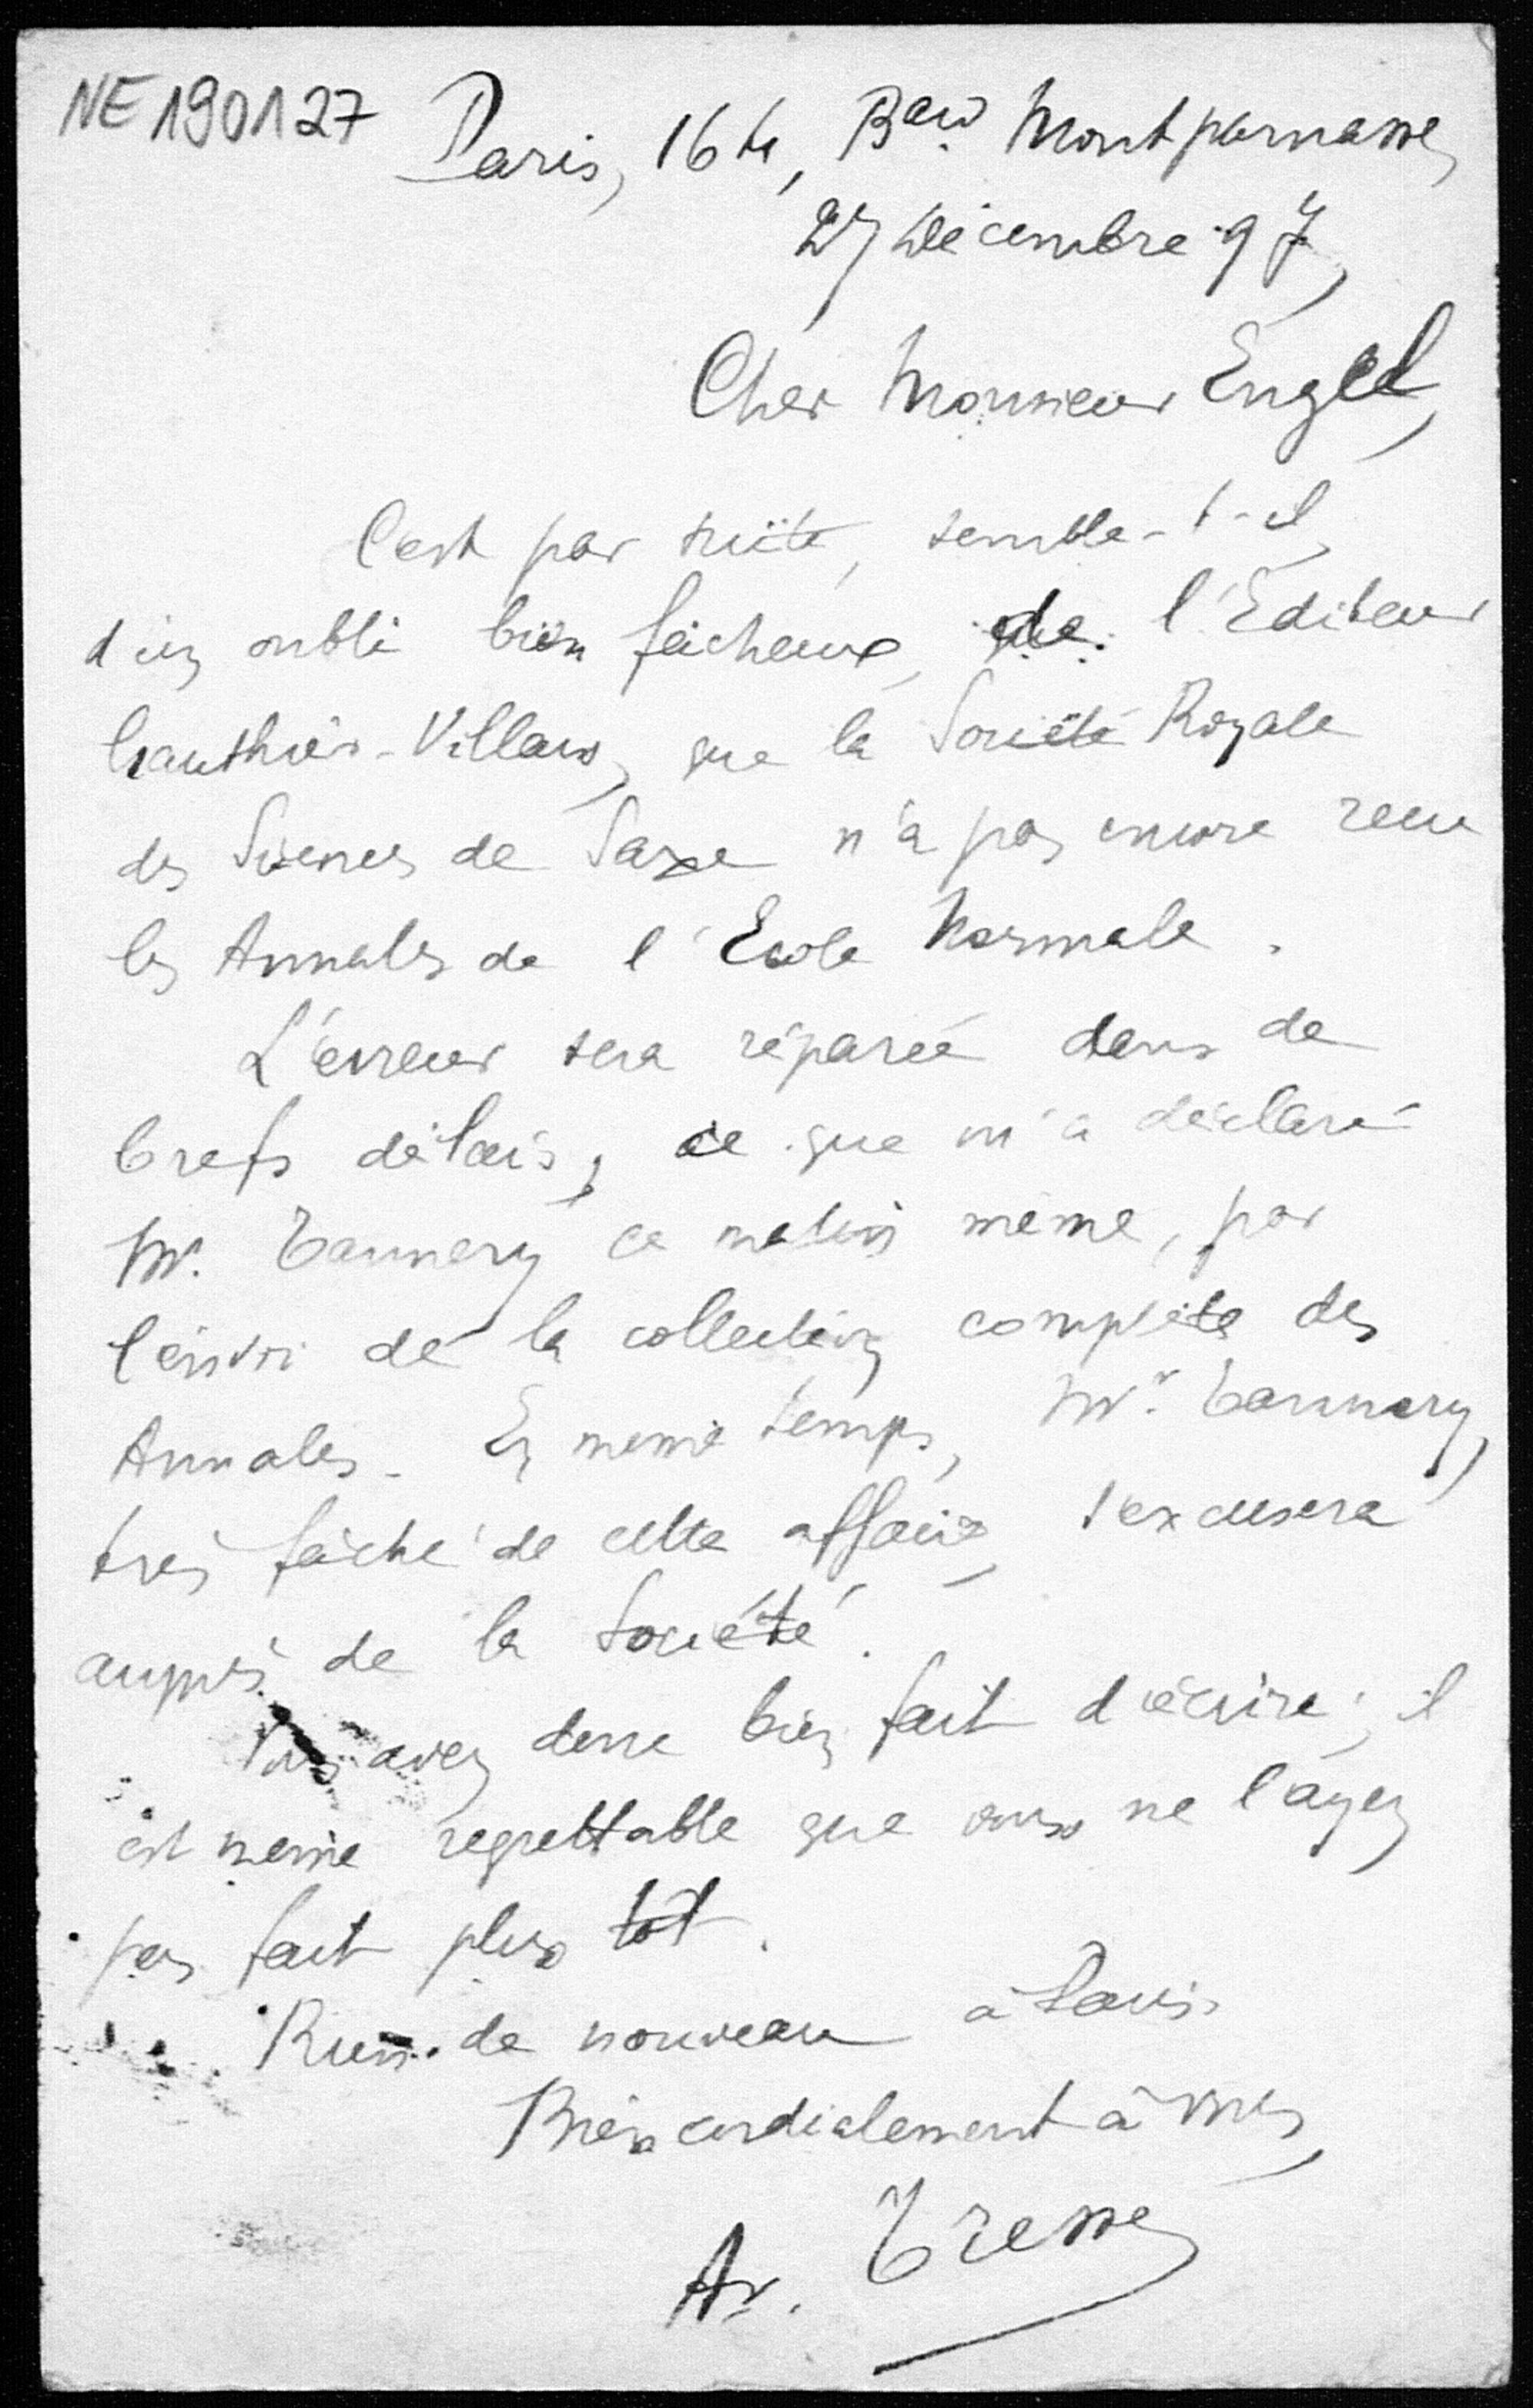 NE190127
Paris, 16 ter, Bard Montparnasse,
27 Décembre 97,
Cher Monsieur Engel,
C'est par suite, semble-t-il,
d'un oubli bien fâcheux, de l'Editeur
Gauthier-Villars, que la Société Royale
des Sciences de Saxe n'a pas encore recu
les Annales de l'Ecole Normale.
L'erreur sera réparée dans de
brefs délais, ce que m'a déclaré
Mr. Tannery ce matin même, par
l'envoi de la collection complète des
Annales. En même temps, Mr. Tannery,
très fâché de cette affaire, s'excusera
auprès de la Société.
Vous avez donc bien fait d'écrire; il
est même regrettable que vous ne l'ayez
pas fait plus tôt.
Rien de nouveau à Paris.
Bien cordialement à vous,
Ar. Tresse